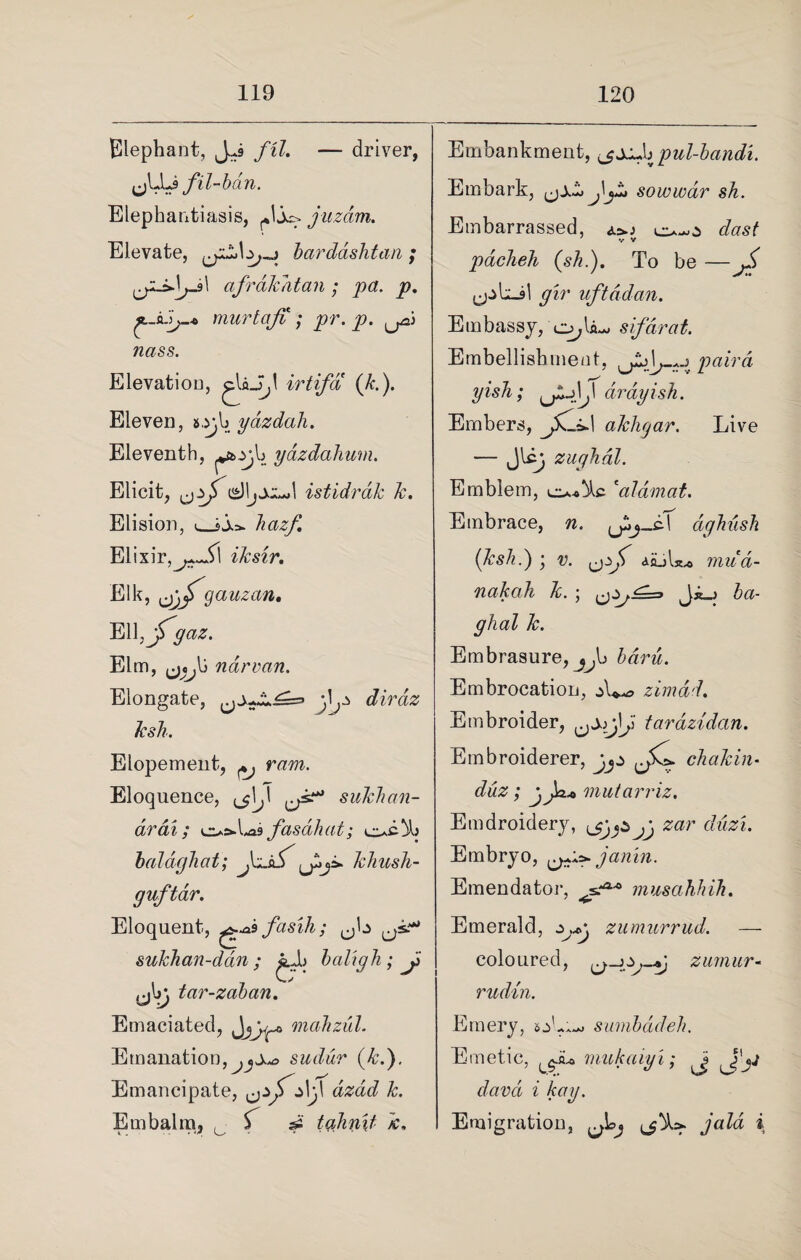 119
120
Elephant, فیل fíl. — driver,
فیلبان fíl-bán.
Elephantiasis, جذام juzám.
Elevate, برداشتن bardáshtan ;
افراختن afrákhtan ; pa. p.
مرتفع murtafi' ; pr. p. نص
nass.
Elevation, ارتفاع irtifá' (k.).
Eleven, یازده yázdah.
Eleventh, یازدهم yázdahum.
Elicit, استدراك کردن istidrák k.
Elision, حذف hazf.
Elixir, اکسیر iksír.
Elk, گوزن gauzan.
Ell, گز gaz.
Elm, نارون nárvan.
Elongate, دراز کشیدن diráz
ksh.
Elopement, رم ram.
Eloquence, سخن آرای sukhan-
árái ; فصاحت fasáhat ; بلاغت
balághat ; خوش گفتار khush-
guftár.
Eloquent, فصیح fasíh ; سخن دان
sukhan-dán ; بلیغ balígh ; تر
زبان tar-zaban.
Emaciated, مهزول mahzúl.
Emanation, صدور sudúr (k.).
Emancipate, آزاد کردن ázád k.
Embalm, tahnít k.
Embankment, پلبندی pul-bandí.
Embark, سوار شدن sowwár sh.
Embarrassed, دست پاچه dast
pácheh (sh.). To be — گیر
افتادن gír uftádan.
Embassy, سفارت sifárat.
Embellishment, پیرایش pairá
yish ; آرایش áráyish.
Embers, اخگر akhgar. Live
— زغال zughál.
Emblem, علامت 'alámat.
Embrace, n. آغوش ághúsh
(ksh.) ; v. معانقه کردن mu'á-
nakah k. ; بغل کردن ba-
ghal k.
Embrasure, بارو bárú.
Embrocation, ضماد zimád.
Embroider, ترازیدن tarázídan.
Embroiderer, چکن دوز chakin-
dúz ; مطرز mutarriz.
Emdroidery, زر دوزی zar dúzí.
Embryo, جنین janín.
Emendator, مصحح musahhih.
Emerald, زمرد zumurrud. —
coloured, زمردین zumur-
rudín.
Emery, سنباده sumbádeh.
Emetic, مقی mukaiyi ; دوای قی
davá i kay.
Emigration, جلای وطن jalá i